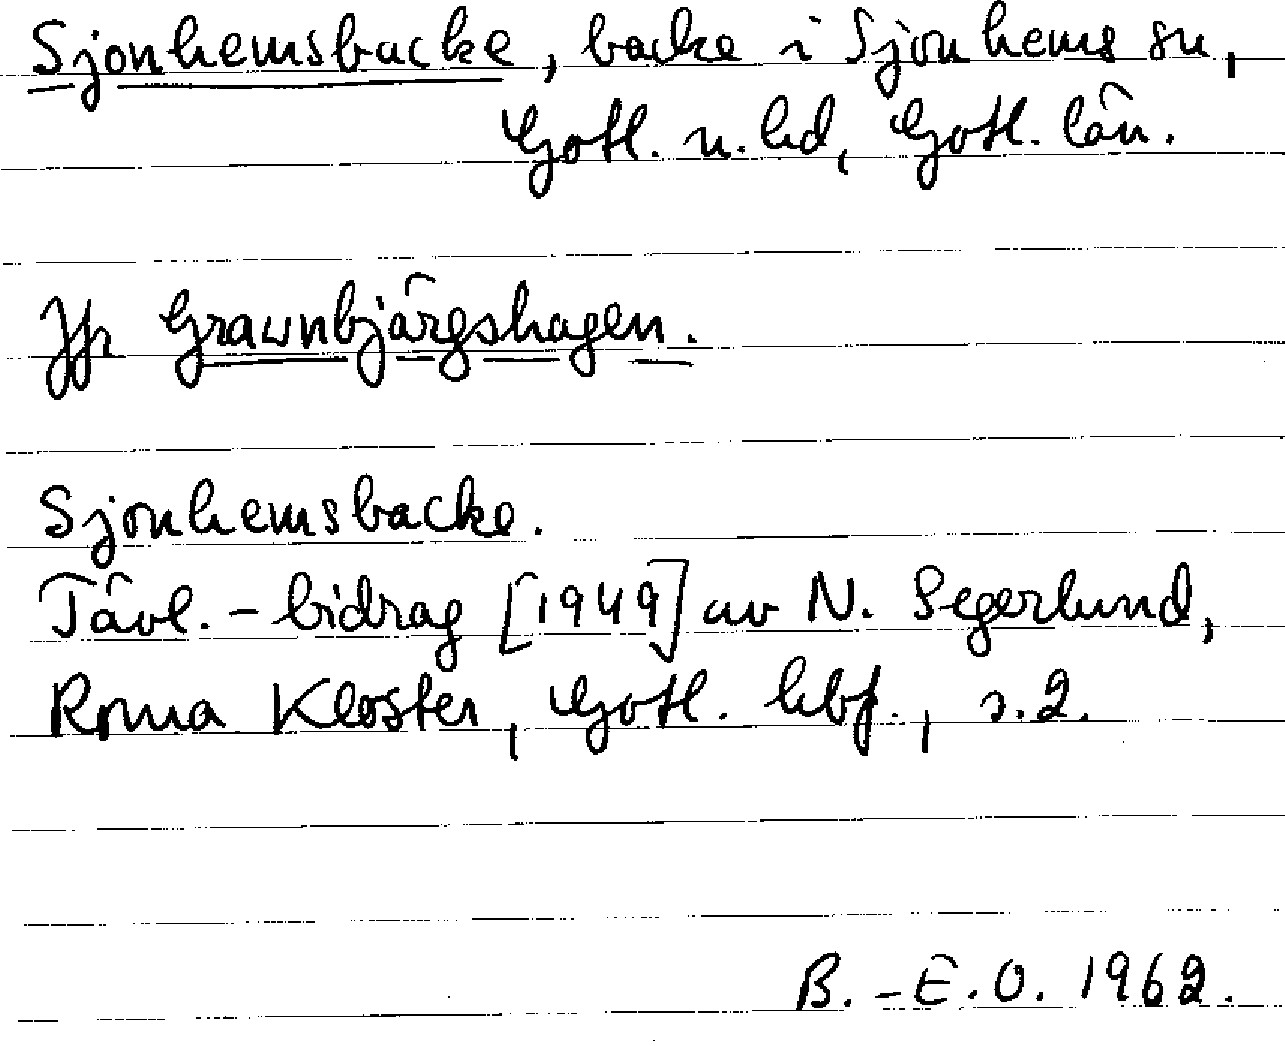 Sjonhemsbacke, backe i Sjonhems sn,
Gotl. n. hd, Gotl. län.
Jfr Graunbjärgshagen.
Sjonhemsbacke.
Tävl.-bidrag [1949] av N. Segerlund,
Roma Kloster, Gotl. hbf., s. 2.
B.-E.O. 1962.